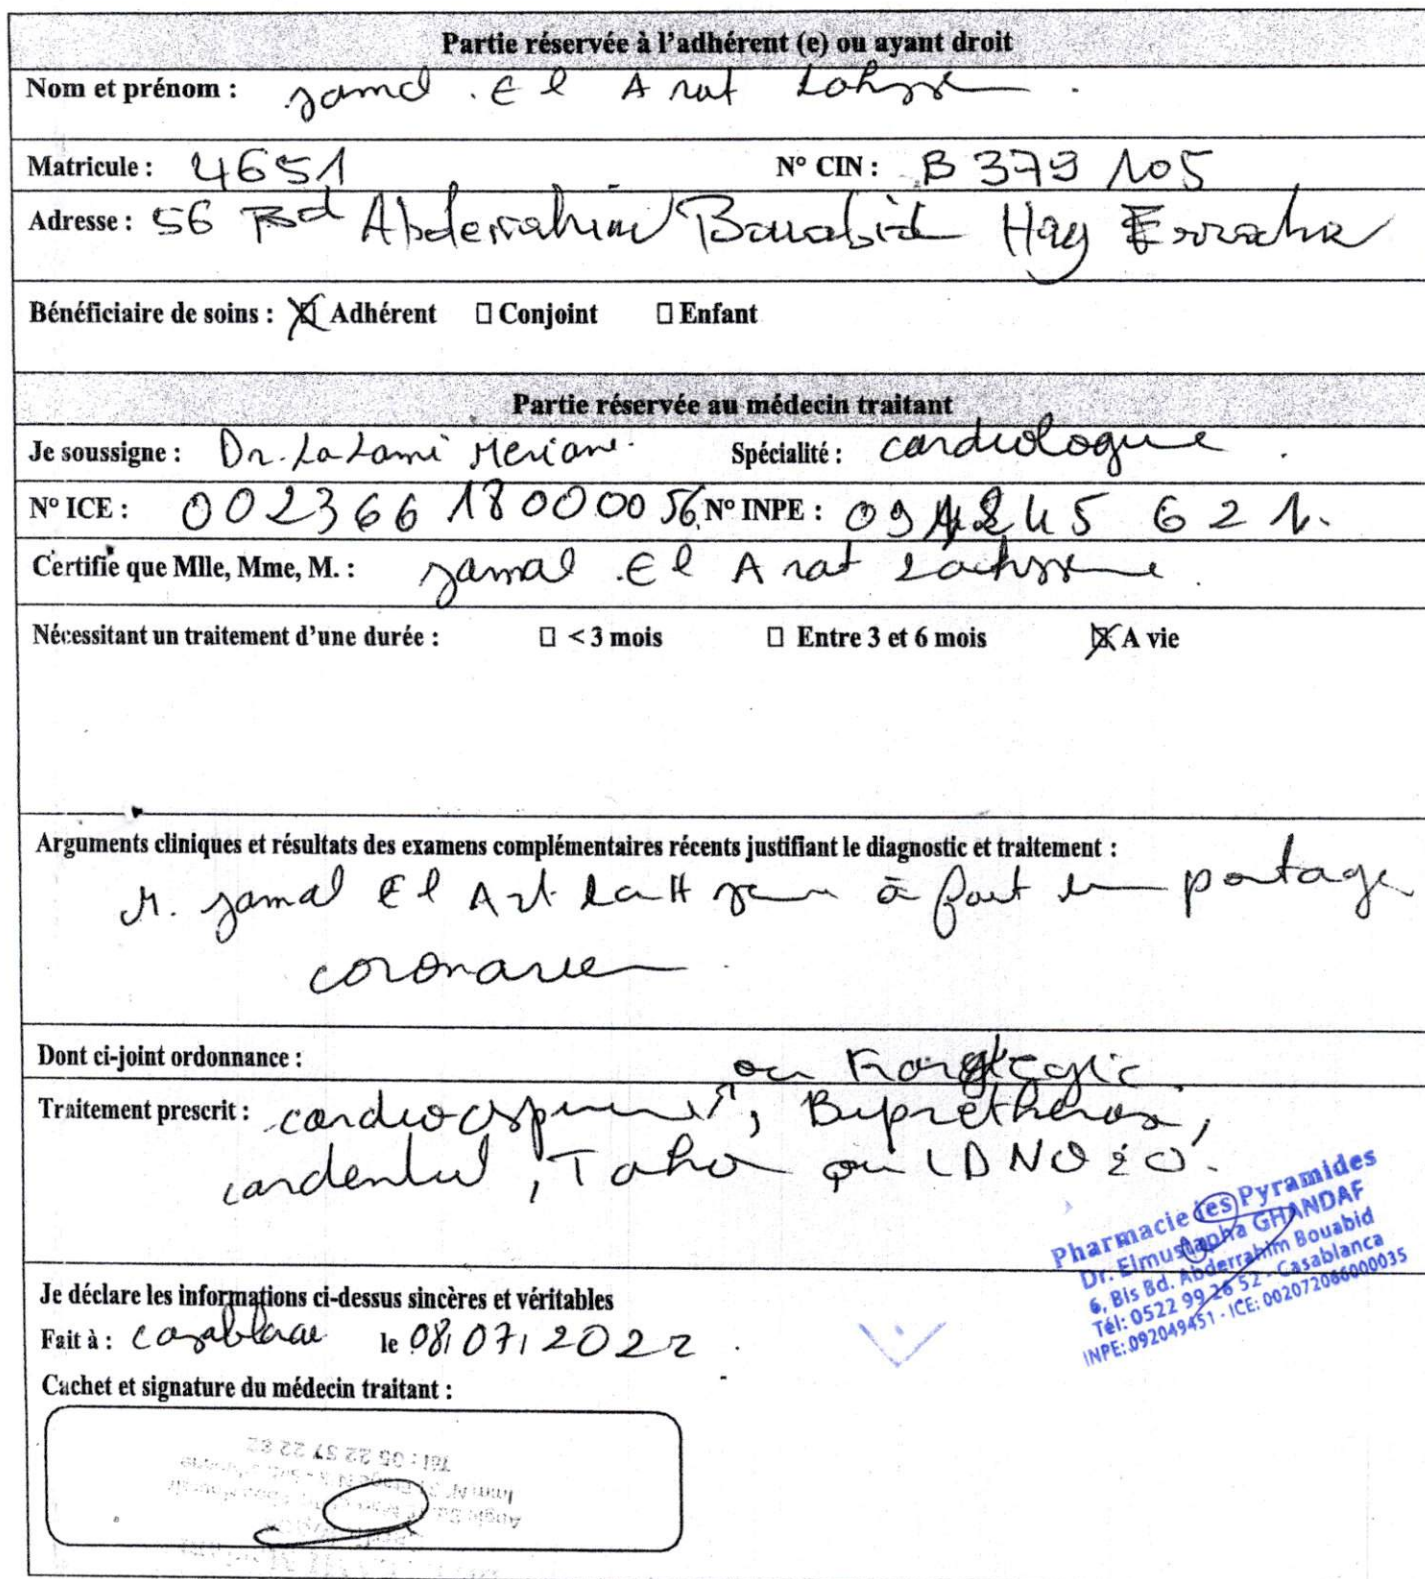 Partie réservée à l'adhérent (e) ou ayant droit
Nom et prénom : Jamal . El Arat
Matricule : 4651 N° CIN : B 379 105
Adresse : 56 Bd Abderrahim Bouabid Hay Erraha
Bénéficiaire de soins : ☒ Adhérent □ Conjoint □ Enfant
Partie réservée au médecin traitant
Je soussigne : Dr. Lalami Meriam. Spécialité : cardiologue .
N° ICE : 002366 18000056 N° INPE :
Certifie que Mlle, Mme, M. : Jamal . El Arat
Nécessitant un traitement d'une durée : □ < 3 mois □ Entre 3 et 6 mois ☒ A vie
Arguments cliniques et résultats des examens complémentaires récents justifiant le diagnostic et traitement :
M. Jamal El à fait un pontage
coronarien .
Dont ci-joint ordonnance :
ou
Traitement prescrit : cardioaspirine ,
cardensiel , Tahor ou LDNO 20 .
Pharmacie des Pyramides
Dr. Elmustapha GHANDAF
6, Bis Bd. Abderrahim Bouabid
Tél: 0522 99 26 52 - Casablanca
INPE: 092049451 - ICE: 002072086000035
Je déclare les informations ci-dessus sincères et véritables
Fait à : Casablanca le 08/07/2022 .
Cachet et signature du médecin traitant :
Tél : 05 22 37 22 82